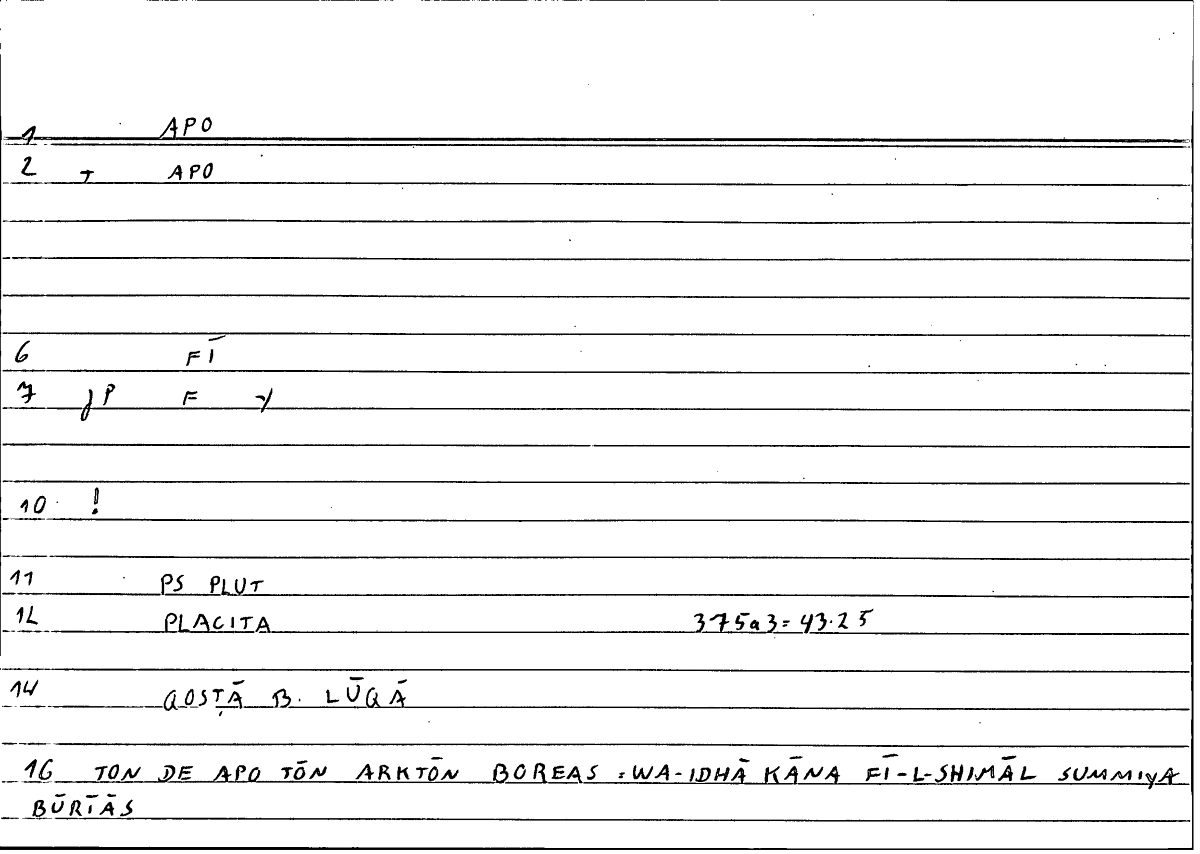 1 APO
2 T APO
6 FĪ
7 P F y
10 !
11 PS PLUT
12 PLACITA 375a3=43.25
14 QOSṬĀ B. LŪQĀ
16 TON DE APO TŌN ARKTŌN BOREAS = WA-IDHĀ KĀNA FĪ-L-SHIMĀL SUMMIYA
BŪRĪĀS